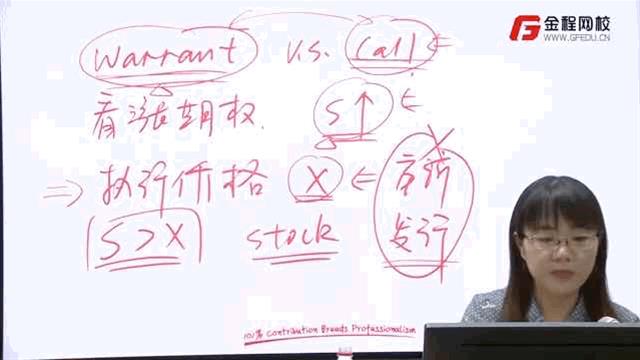 金程网校
WWW.GFEDU.CN
Warrant v.s. Call
看涨期权 S↑
⇒ 执行价格 X ← 高价
S>X stock 发行
101% Contribution Breeds Professionalism